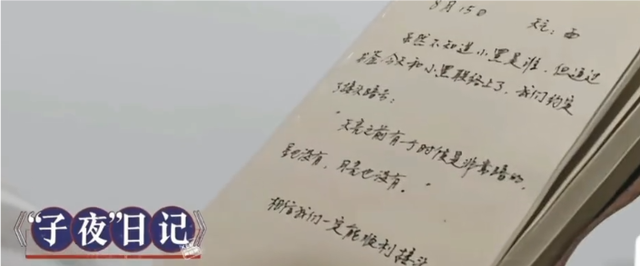 8月15日 天气：雨
虽然不知道小黑是谁，但通过
今天和小黑联络上了，我们约定
了接头暗号：
“天亮之前有一个时候是非常暗的，
星也没有，月亮也没有。”
相信我们一定能顺利接头
《“子夜”日记》